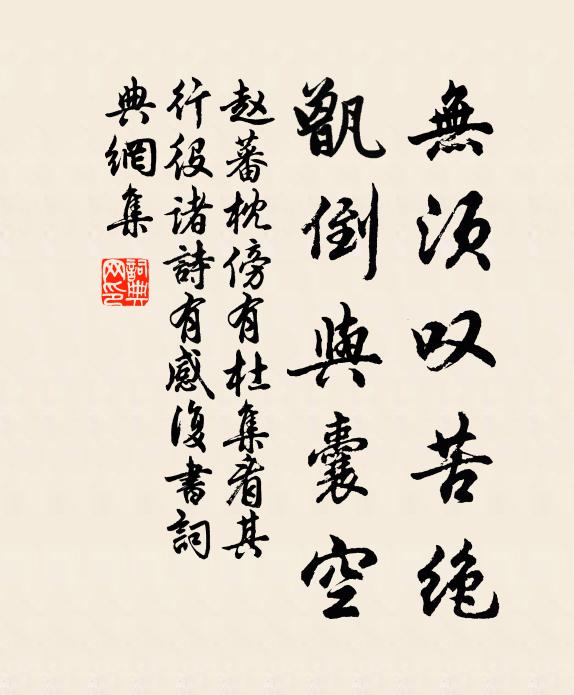 無須叹苦绝
甑倒與囊空
赵蕃枕傍有杜集看其
行役诸詩有感復書詞
典網集
詞典网印